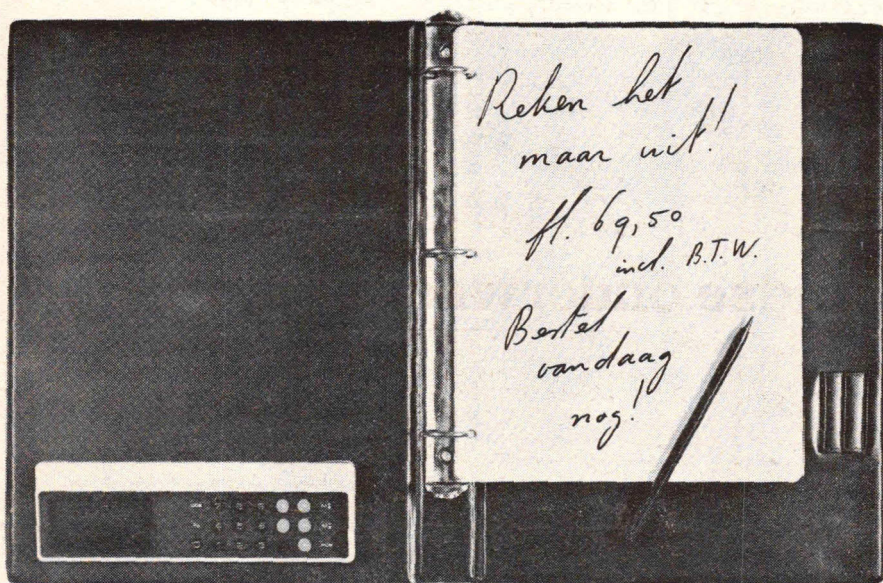 Reken het
maar uit!
fl. 69,50
incl. B.T.W.
Bestel
vandaag
nog!